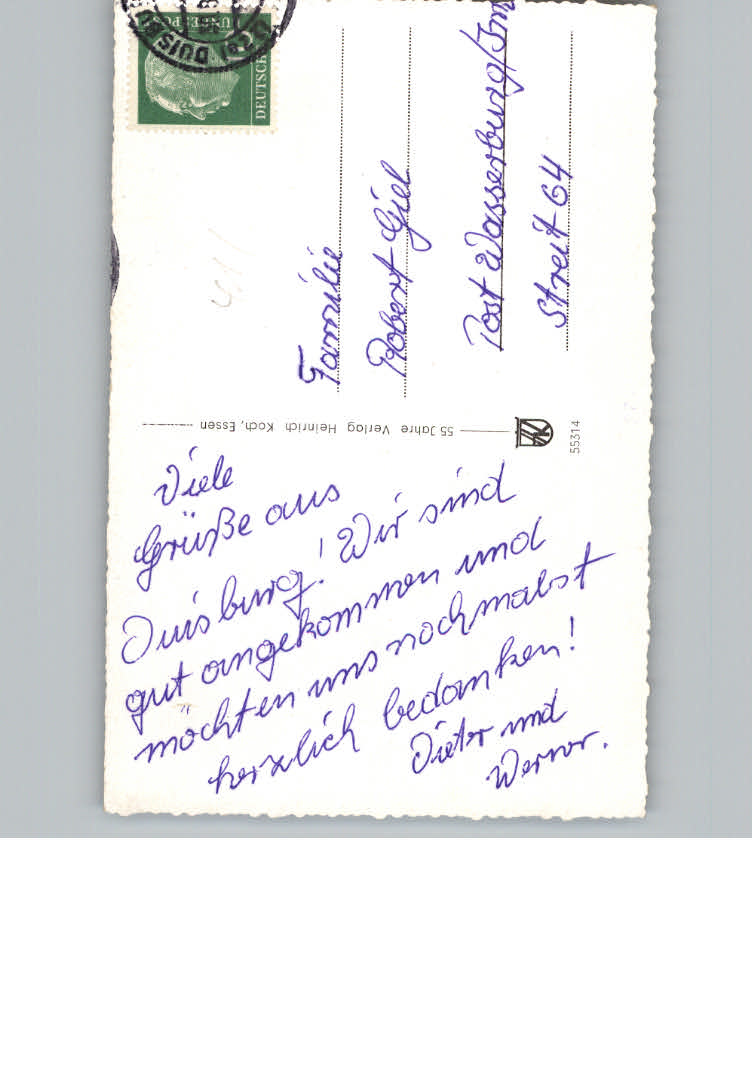 Viele
Grüße aus
Duisburg! Wir sind
gut angekommen und
möchten uns nochmalst
herzlich bedanken!
Dieter und
Werner.
55 Jahre Verlag Heinrich Koch, Essen
55314
Familie
Robert Giel
Post Wasserburg/Inn
Streit 64
DEUTSCHE
BUNDESPOST
DUISB